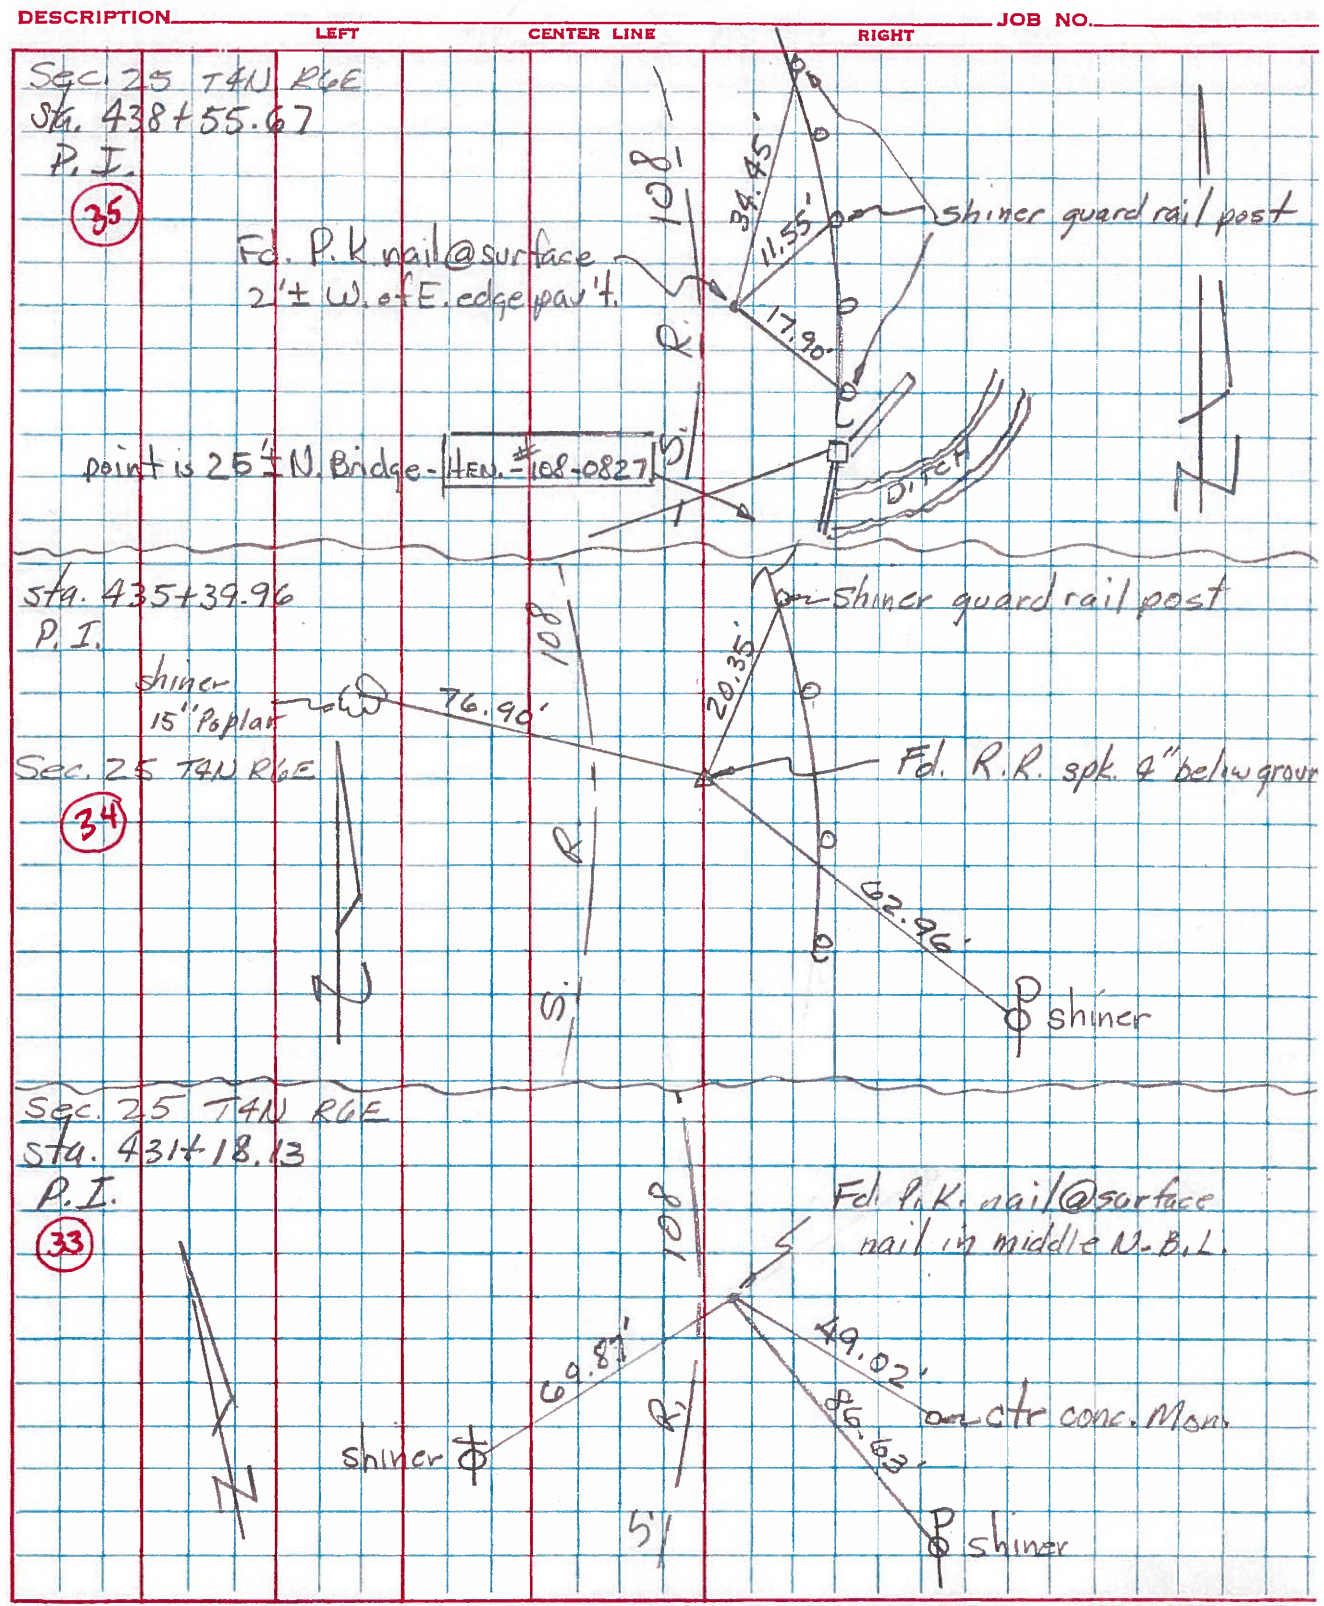 DESCRIPTION JOB NO.
LEFT CENTER LINE RIGHT
Sec. 25 T4N R6E
Sta. 438+55.67
P.I.
35
Fd. P.K. nail @ surface
2'± W. of E. edge pav't.
S. R. 108
34.45'
11.55'
17.90'
shiner guard rail post
point is 25'± N. Bridge - HEN.-#108-0827
DITCH
N
sta. 435+39.96
P.I.
shiner
15" Poplar
Sec. 25 T4N R6E
34
76.90'
S. R. 108
20.35'
shiner guard rail post
Fd. R.R. spk. 4" below groun
62.96'
shiner
N
Sec. 25 T4N R6E
sta. 431+18.13
P.I.
33
S. R. 108
Fd. P.K. nail @ surface
nail in middle N.B.L.
69.87'
49.02'
ctr conc. Mon.
86.63'
shiner
shiner
N